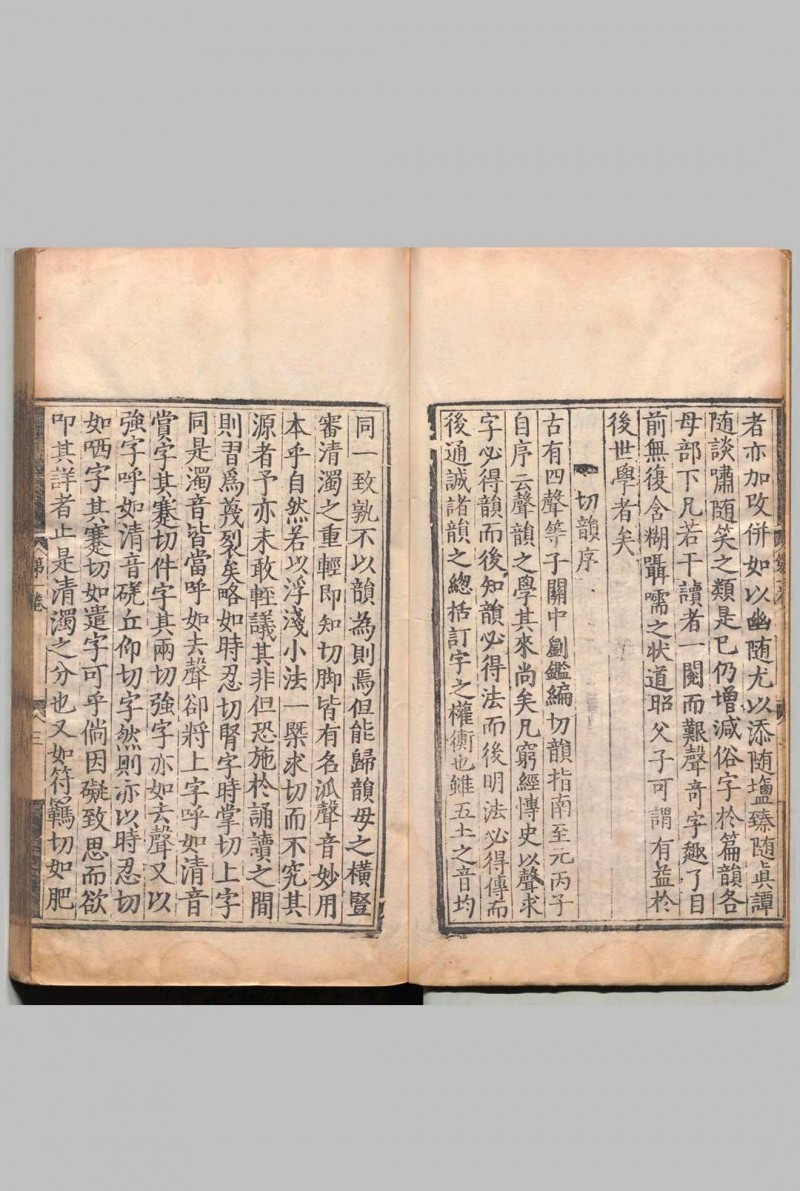 者亦加改併如以幽随尤以添随塩臻随真譚
随談嘯随笑之類是已仍增減俗字於篇韻各
母部下凡若干讀者一閱而艱聲奇字趣了目
前無復含糊囁嚅之状道昭父子可謂有益於
後世學者矣
切韻序
古有四聲等子關中劉鑑編切韻指南至元丙子
自序云聲韻之學其來尚矣凡窮經愽史以聲求
字必得韻而後知韻必得法而後明法必得傳而
後通誠諸韻之緫括訂字之權衡也雖五土之音均
同一致孰不以韻為則焉但能歸韻母之橫豎
審清濁之重輕即知切脚皆有名派聲音妙用
本乎自然若以浮淺小法一槩求切而不究其
源者予亦未敢輊議其非但恐施於誦讀之間
則習爲蔑裂矣略如時忍切腎字時掌切上字
同是濁音皆當呼如去聲卻將上字呼如清音
賞字其蹇切件字其兩切強字亦如去聲又以
強字呼如清音磽丘仰切字然則亦以時忍切
如哂字其蹇切如遣字可乎倘因礙致思而欲
叩其詳者止是清濁之分也又如符羈切如肥
第一卷
三